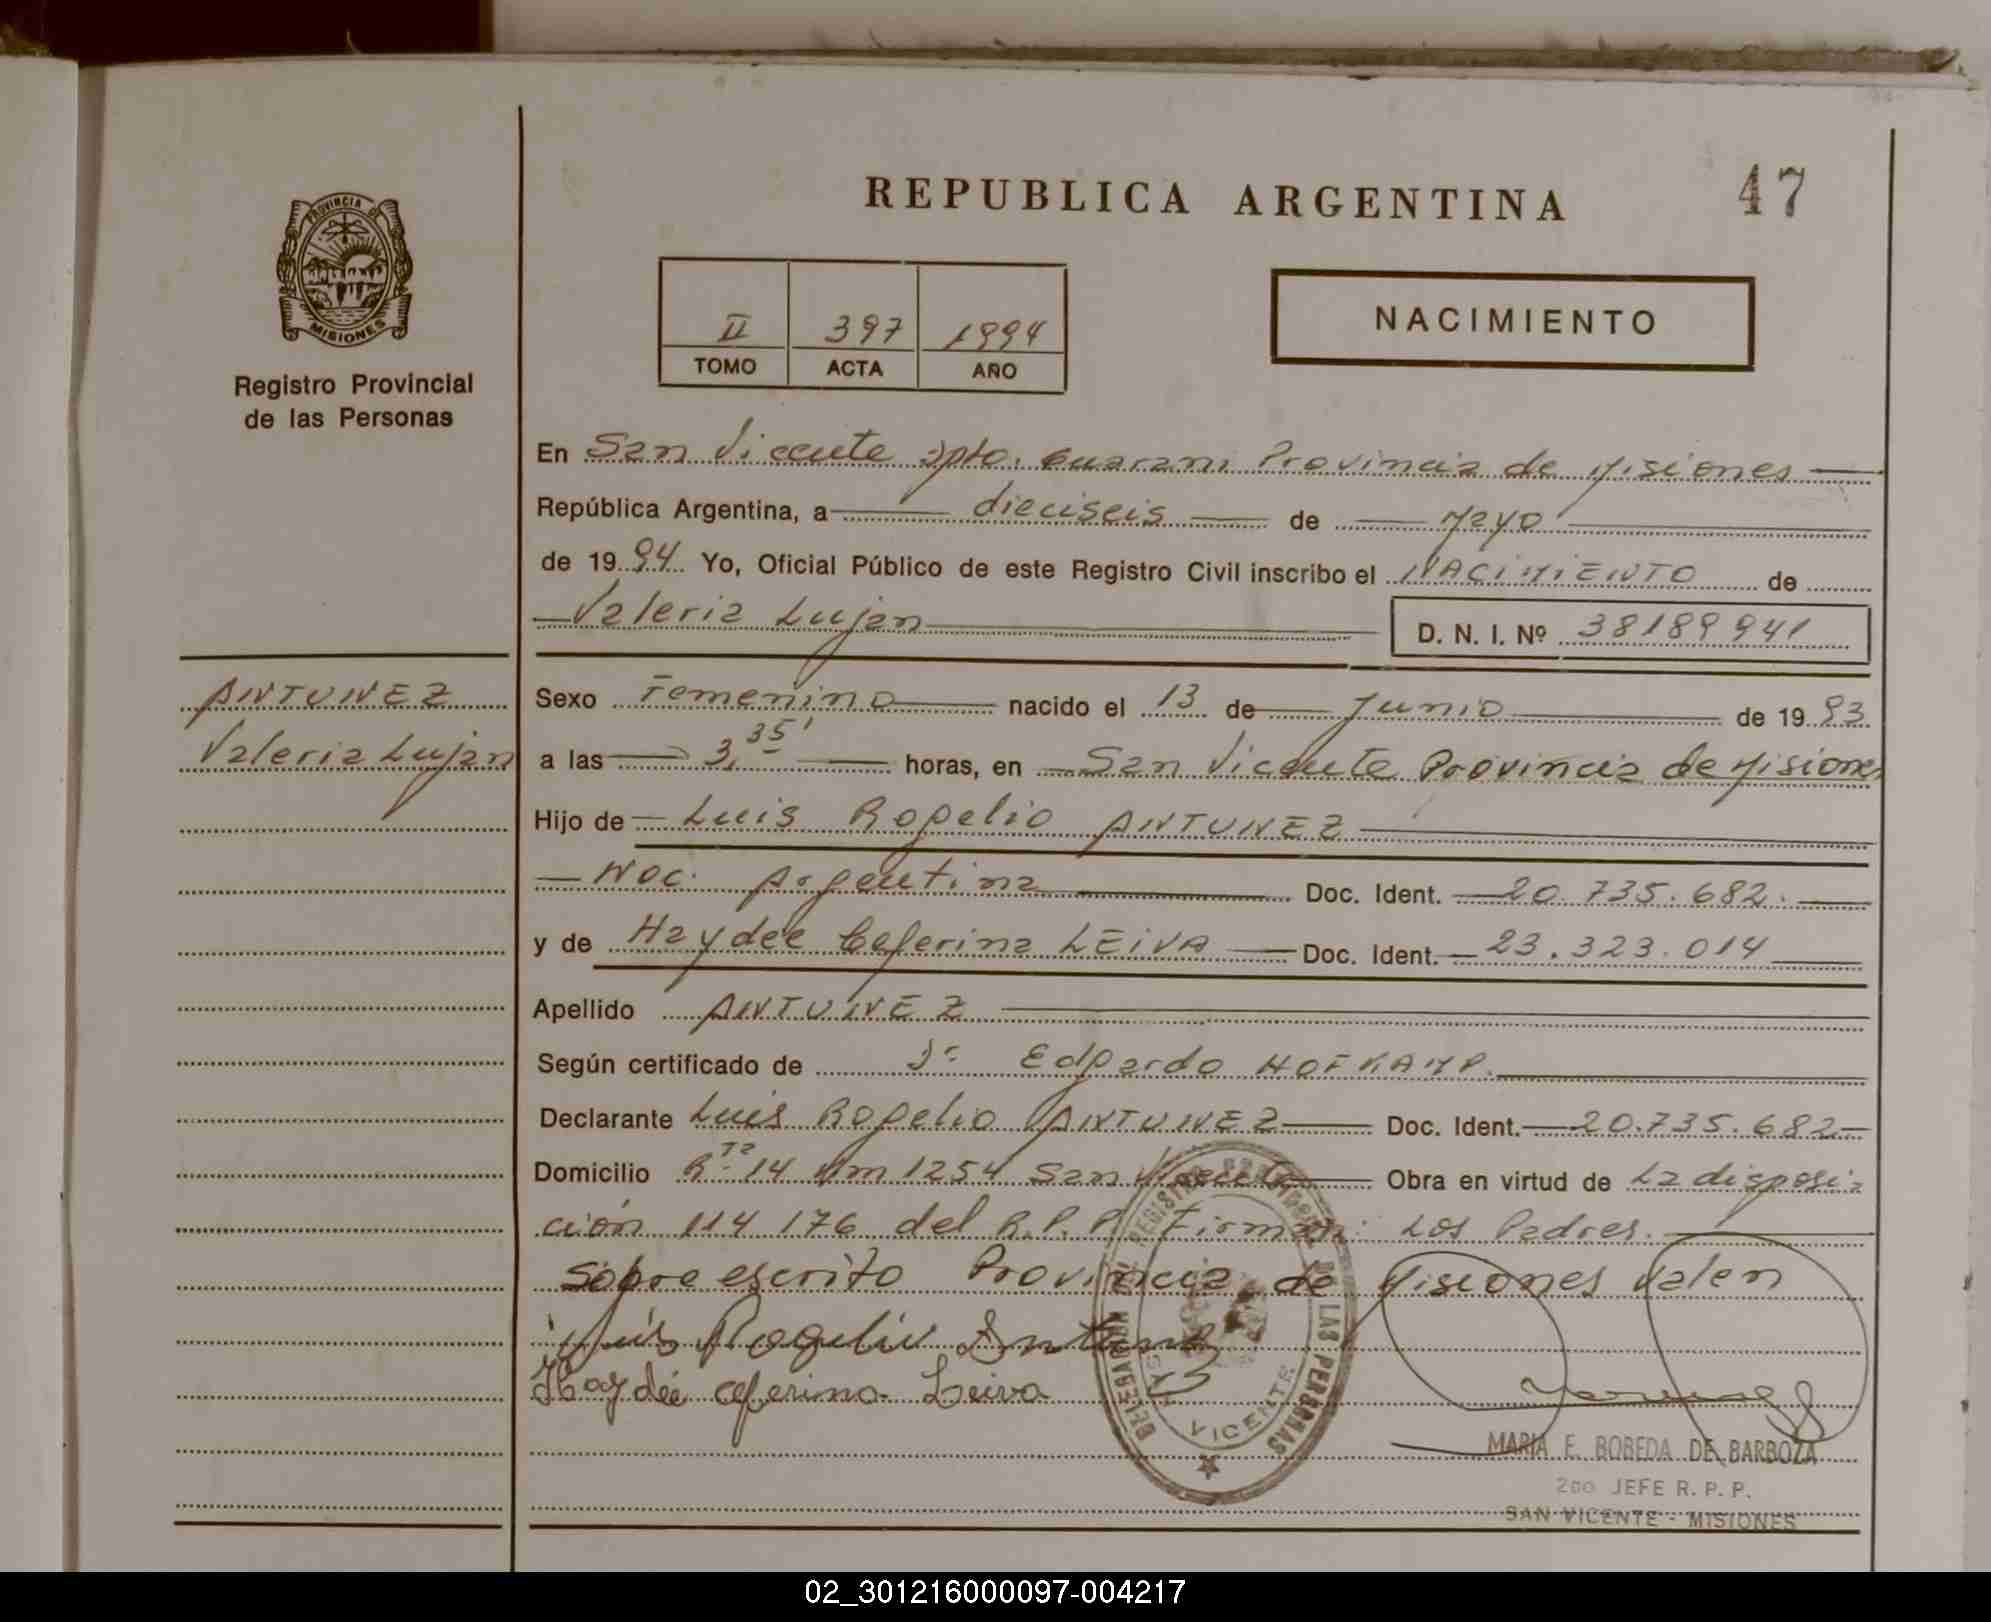 REPUBLICA ARGENTINA
47
PROVINCIA DE
MISIONES
Registro Provincial
de las Personas
II 397 1994
TOMO ACTA AÑO
NACIMIENTO
En San Vicente Dpto. Guarani Provincia de Misiones
República Argentina, a dieciseis de Mayo
de 1994 Yo, Oficial Público de este Registro Civil inscribo el NACIMIENTO de
Valeria Lujan D. N. I. Nº 38189941
ANTUNEZ
Valeria Lujan
Sexo Femenino nacido el 13 de Junio de 1993
a las 3,35' horas, en San Vicente Provincia de Misiones
Hijo de Luis Rogelio ANTUNEZ
Nac. Argentina Doc. Ident. 20.735.682.
y de Haydee Ceferina LEIVA Doc. Ident. 23.323.014
Apellido ANTUNEZ
Según certificado de Dr Edgardo HOFKAMP.
Declarante Luis Rogelio ANTUNEZ Doc. Ident. 20.735.682
Domicilio Rta 14 Km 1254 San Vicente Obra en virtud de La disposi-
ción 114/176 del R.P.P. Firman: Los Padres.
Sobre escrito Provincia de Misiones Valen
Luis Rogelio Antunez
Haydée Ceferina Leiva
DELEGACION DEL REGISTRO PROVINCIAL DE LAS PERSONAS
SAN VICENTE
MARIA E. BOBEDA DE BARBOZA
2DO JEFE R. P. P.
SAN VICENTE - MISIONES
02_301216000097-004217